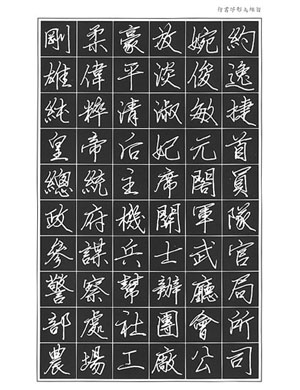 剛柔豪放婉約
雄偉平淡俊逸
純粹清淑敏捷
皇帝后妃元首
總統主席閣員
政府機關軍隊
參謀兵士武官
警察幫辦廳局
部處社團會所
農場工廠公司